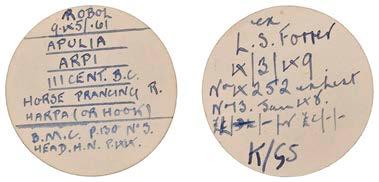 ROBOL
9.IX5/.61
APULIA
ARPI
III CENT. B.C.
HORSE PRANCING R.
HARPA (OR HOOK)
B.M.C. P.130 Nº 3.
HEAD. H.N. P.
ex
L.S. Forrer
IX/3/IX9.
Nº IX252 in
Nº 13.
K/GS